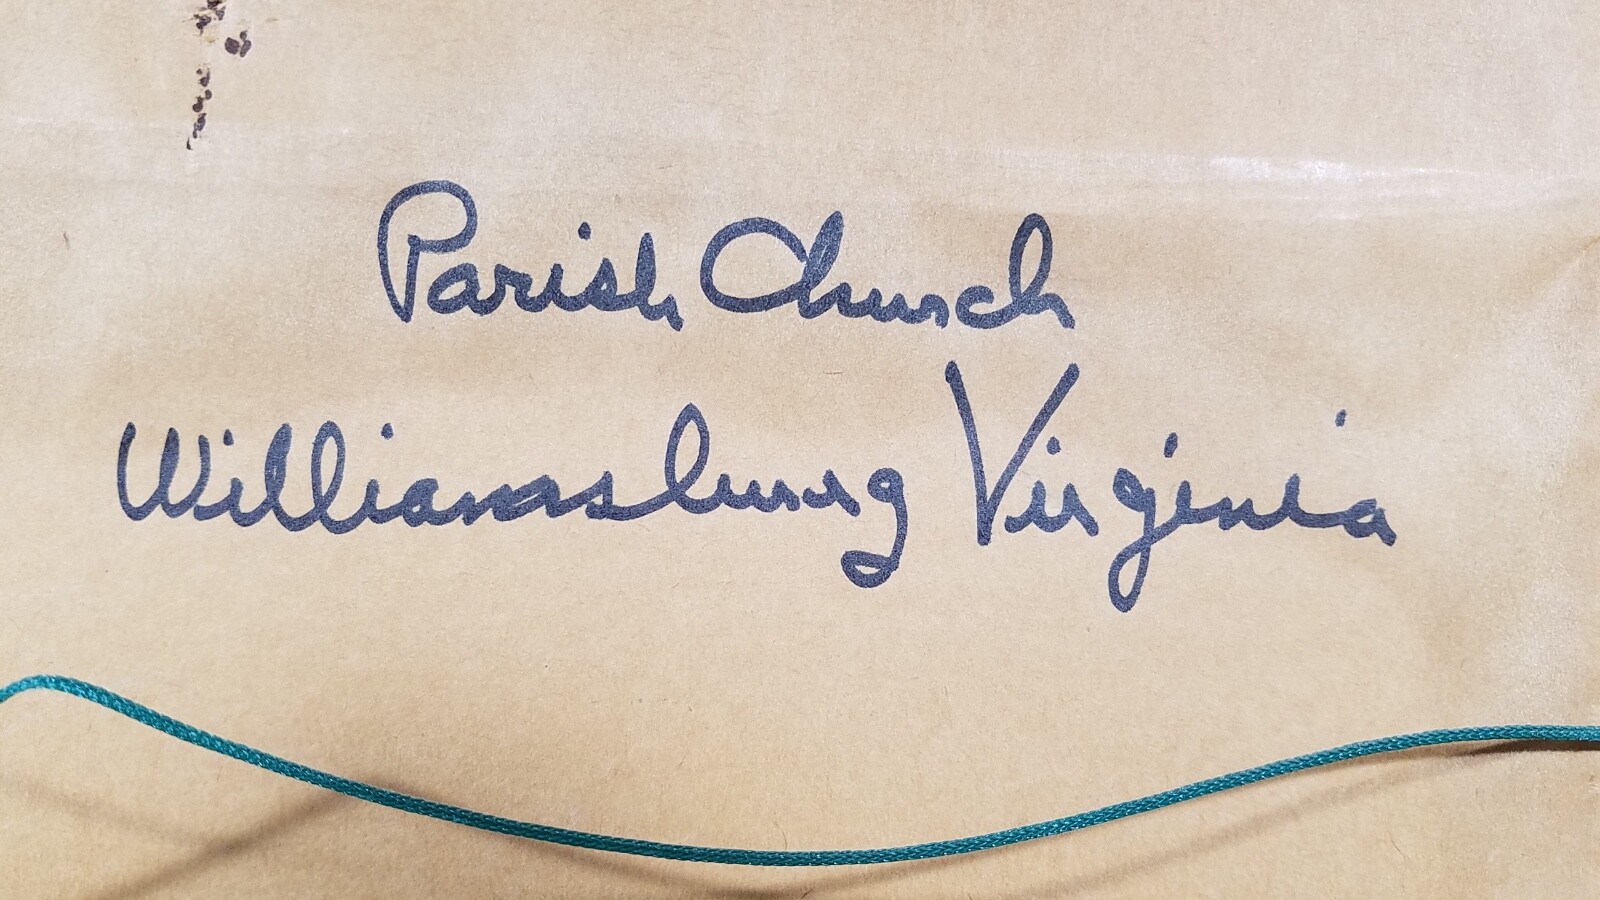 Parish Church
Williamsburg Virginia